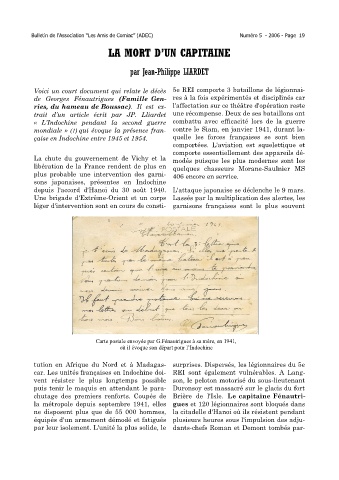 Bulletin de l'Association "Les Amis de Comiac" (ADEC)
Numéro 5 - 2006 - Page 19
LA MORT D'UN CAPITAINE
par Jean-Philippe LIARDET
Voici un court document qui relate le décès
de Georges Fénautrigues (Famille Gen-
ries, du hameau de Bonssac). Il est ex-
trait d'un article écrit par JP. Liardet
« L'Indochine pendant la second guerre
mondiale » (1) qui évoque la présence fran-
çaise en Indochine entre 1945 et 1954.
La chute du gouvernement de Vichy et la
libération de la France rendent de plus en
plus probable une intervention des garni-
sons japonaises, présentes en Indochine
depuis l'accord d'Hanoi du 30 août 1940.
Une brigade d'Extrême-Orient et un corps
léger d'intervention sont en cours de consti-
5e REI comporte 3 bataillons de légionnai-
res à la fois expérimentés et disciplinés car
l'affectation sur ce théâtre d'opération reste
une récompense. Deux de ses bataillons ont
combattu avec efficacité lors de la guerre
contre le Siam, en janvier 1941, durant la-
quelle les forces françaises se sont bien
comportées. L'aviation est squelettique et
comporte essentiellement des appareils dé-
modés puisque les plus modernes sont les
quelques chasseurs Morane-Saulnier MS
406 encore en service.
L'attaque japonaise se déclenche le 9 mars.
Lassés par la multiplication des alertes, les
garnisons françaises sont le plus souvent
Carte postale envoyée par G.Fénautrigues à sa mère, en 1941,
où il évoque son départ pour l'Indochine
tution en Afrique du Nord et à Madagas-
par. Les unités françaises en Indochine doi-
vent résister le plus longtemps possible
puis tenir le maquis en attendant le para-
chutage des premiers renforts. Coupés de
la métropole depuis septembre 1941, elles
ne disposent plus que de 55 000 hommes,
équipés d'un armement démodé et fatigués
par leur isolement. L'unité la plus solide, le
surprises. Dispersés, les légionnaires du 5e
REI sont également vulnérables. A Lang-
son, le peloton motorisé du sous-lieutenant
Duronsoy est massacré sur le glacis du fort
Brière de l'Isle. Le capitaine Fénautri-
gues et 120 légionnaires sont bloqués dans
la citadelle d'Hanoi où ils résistent pendant
plusieurs heures sous l'impulsion des adju-
dants-chefs Roman et Demont tombés par-